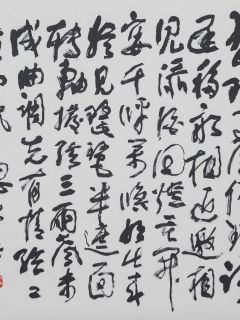 遲移船相近邀相
見添酒回燈重開
宴千呼萬喚始出來
猶抱琵琶半遮面
轉軸撥絃三兩聲未
成曲調先有情絃絃